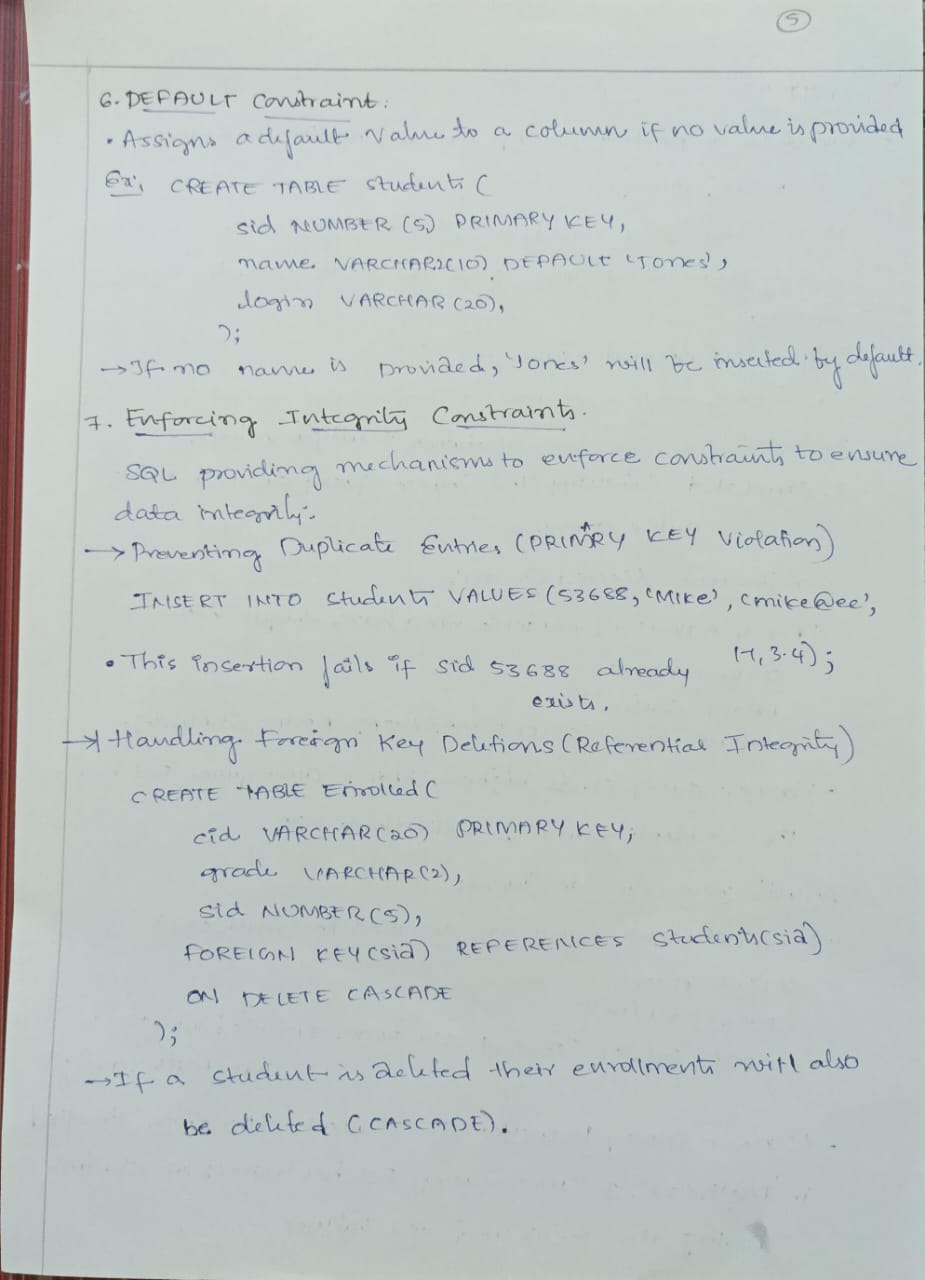 5
6. DEFAULT Constraint:
• Assigns a default value to a column if no value is provided
Ex:, CREATE TABLE students (
sid NUMBER (5) PRIMARY KEY,
name VARCHAR2(10) DEFAULT 'Jones',
login VARCHAR (20),
);
→ If no name is provided, 'Jones' will be inserted by default.
7. Enforcing Integrity Constraints.
SQL providing mechanisms to enforce constraints to ensure
data integrity.
→ Preventing Duplicate Entries (PRIMARY KEY Violation)
INSERT INTO Students VALUES (53688, 'Mike', 'mike@ee',
17, 3.4);
• This insertion fails if sid 53688 already
exists.
→ Handling Foreign Key Deletions (Referential Integrity)
CREATE TABLE Enrolled (
cid VARCHAR(20) PRIMARY KEY,
grade VARCHAR(2),
sid NUMBER(5),
FOREIGN KEY (sid) REFERENCES Students(sid)
ON DELETE CASCADE
);
→ If a student is deleted their enrollments will also
be deleted (CASCADE).